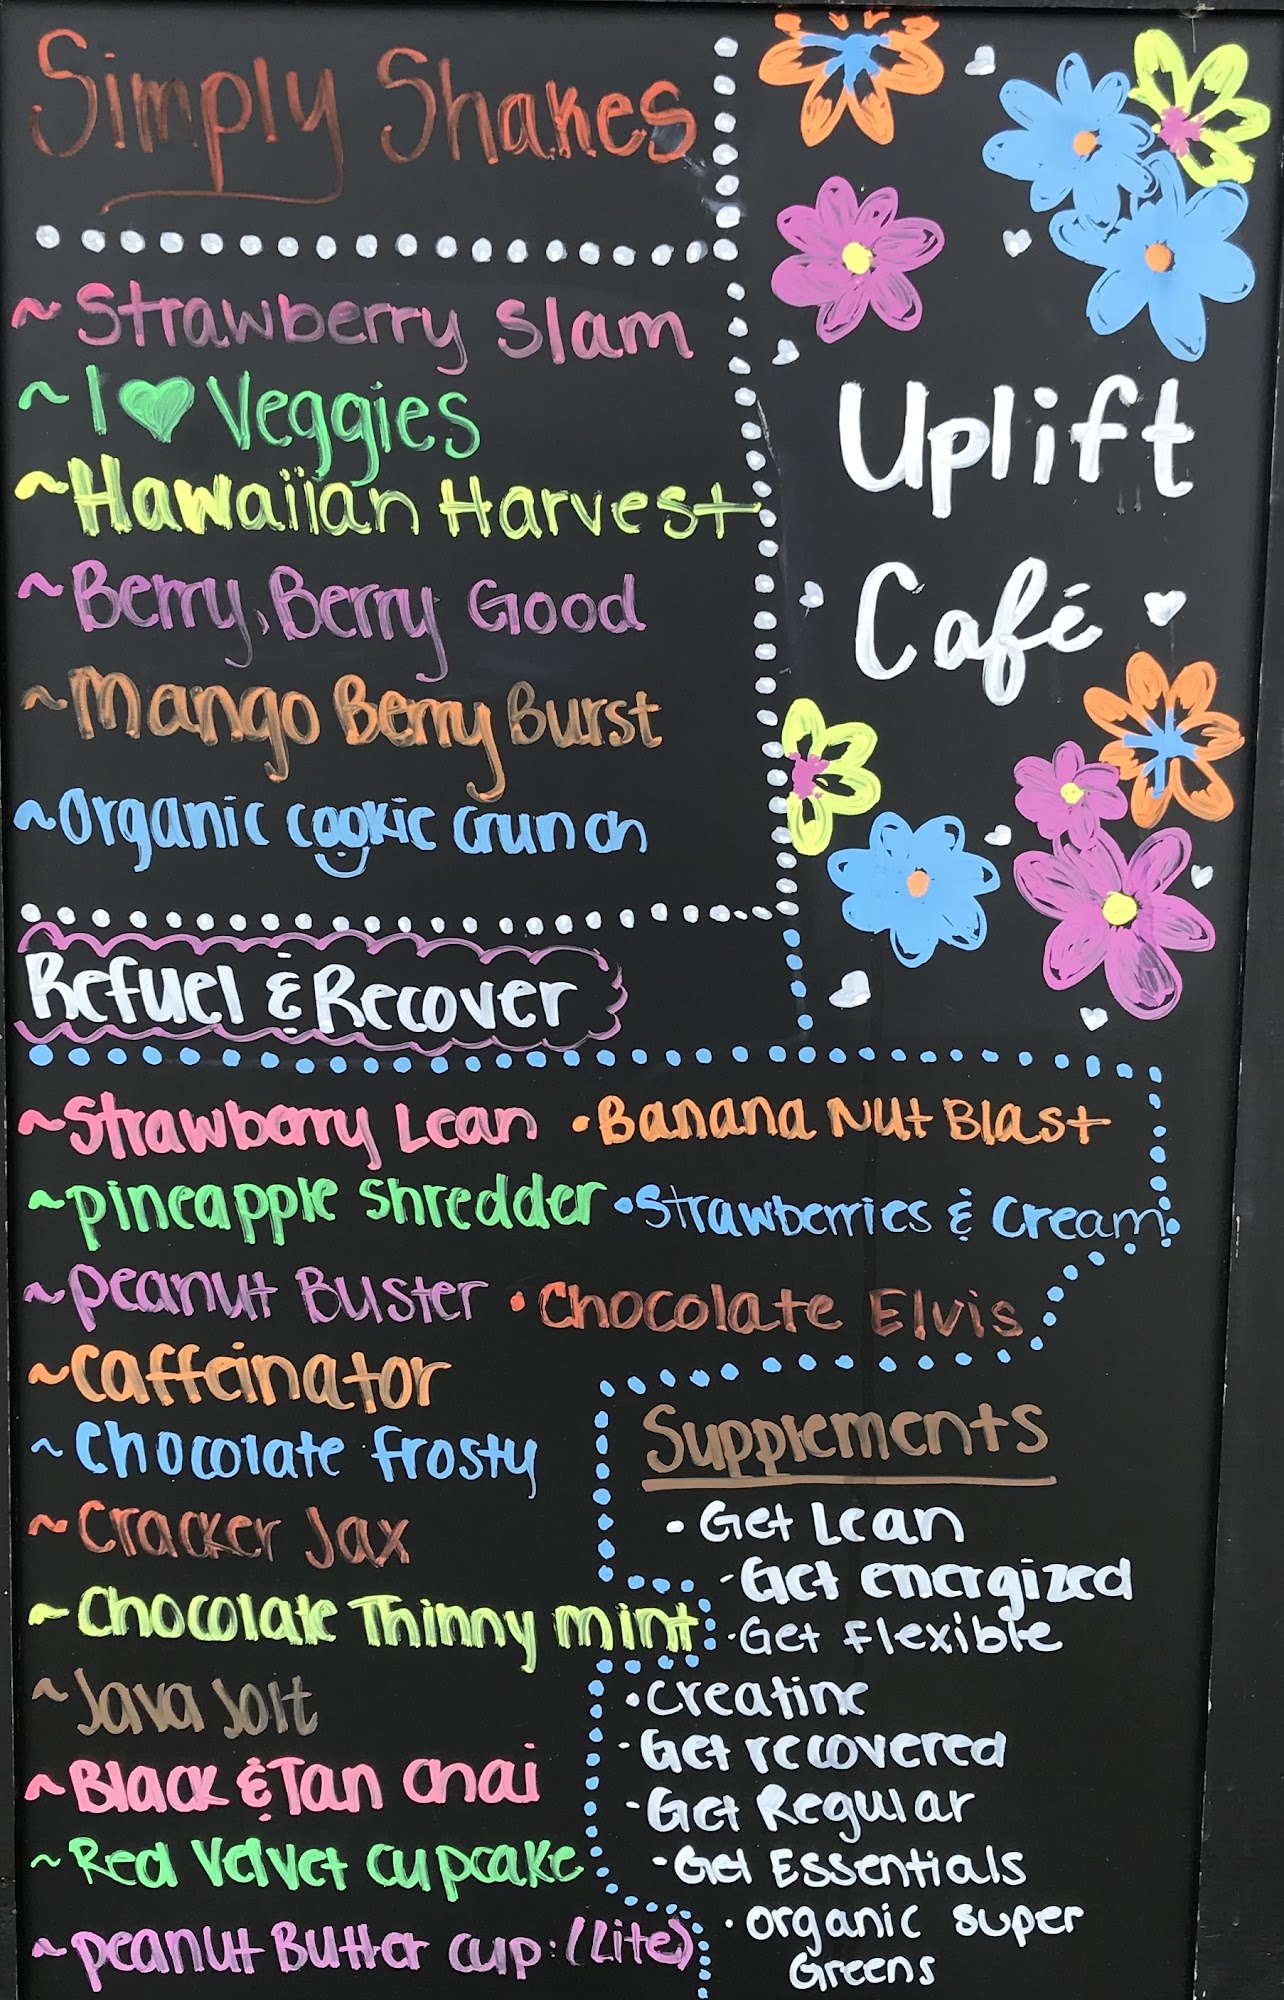 Simply Shakes
~ Strawberry Slam
~ I ♥ Veggies
~ Hawaiian Harvest
~ Berry, Berry Good
~ Mango Berry Burst
~ Organic Cookie Crunch
Uplift
Café
Refuel & Recover
~ Strawberry Lean
~ Pineapple Shredder
~ Peanut Buster
~ Caffeinator
~ Chocolate Frosty
~ Cracker Jax
~ Chocolate Thinny Mint
~ Java Jolt
~ Black & Tan Chai
~ Red Velvet Cupcake
~ Peanut Butter Cup: (Lite)
• Banana Nut Blast
• Strawberries & Cream
• Chocolate Elvis
Supplements
• Get Lean
• Get energized
• Get flexible
• Creatine
• Get recovered
• Get Regular
• Get Essentials
• Organic Super
Greens